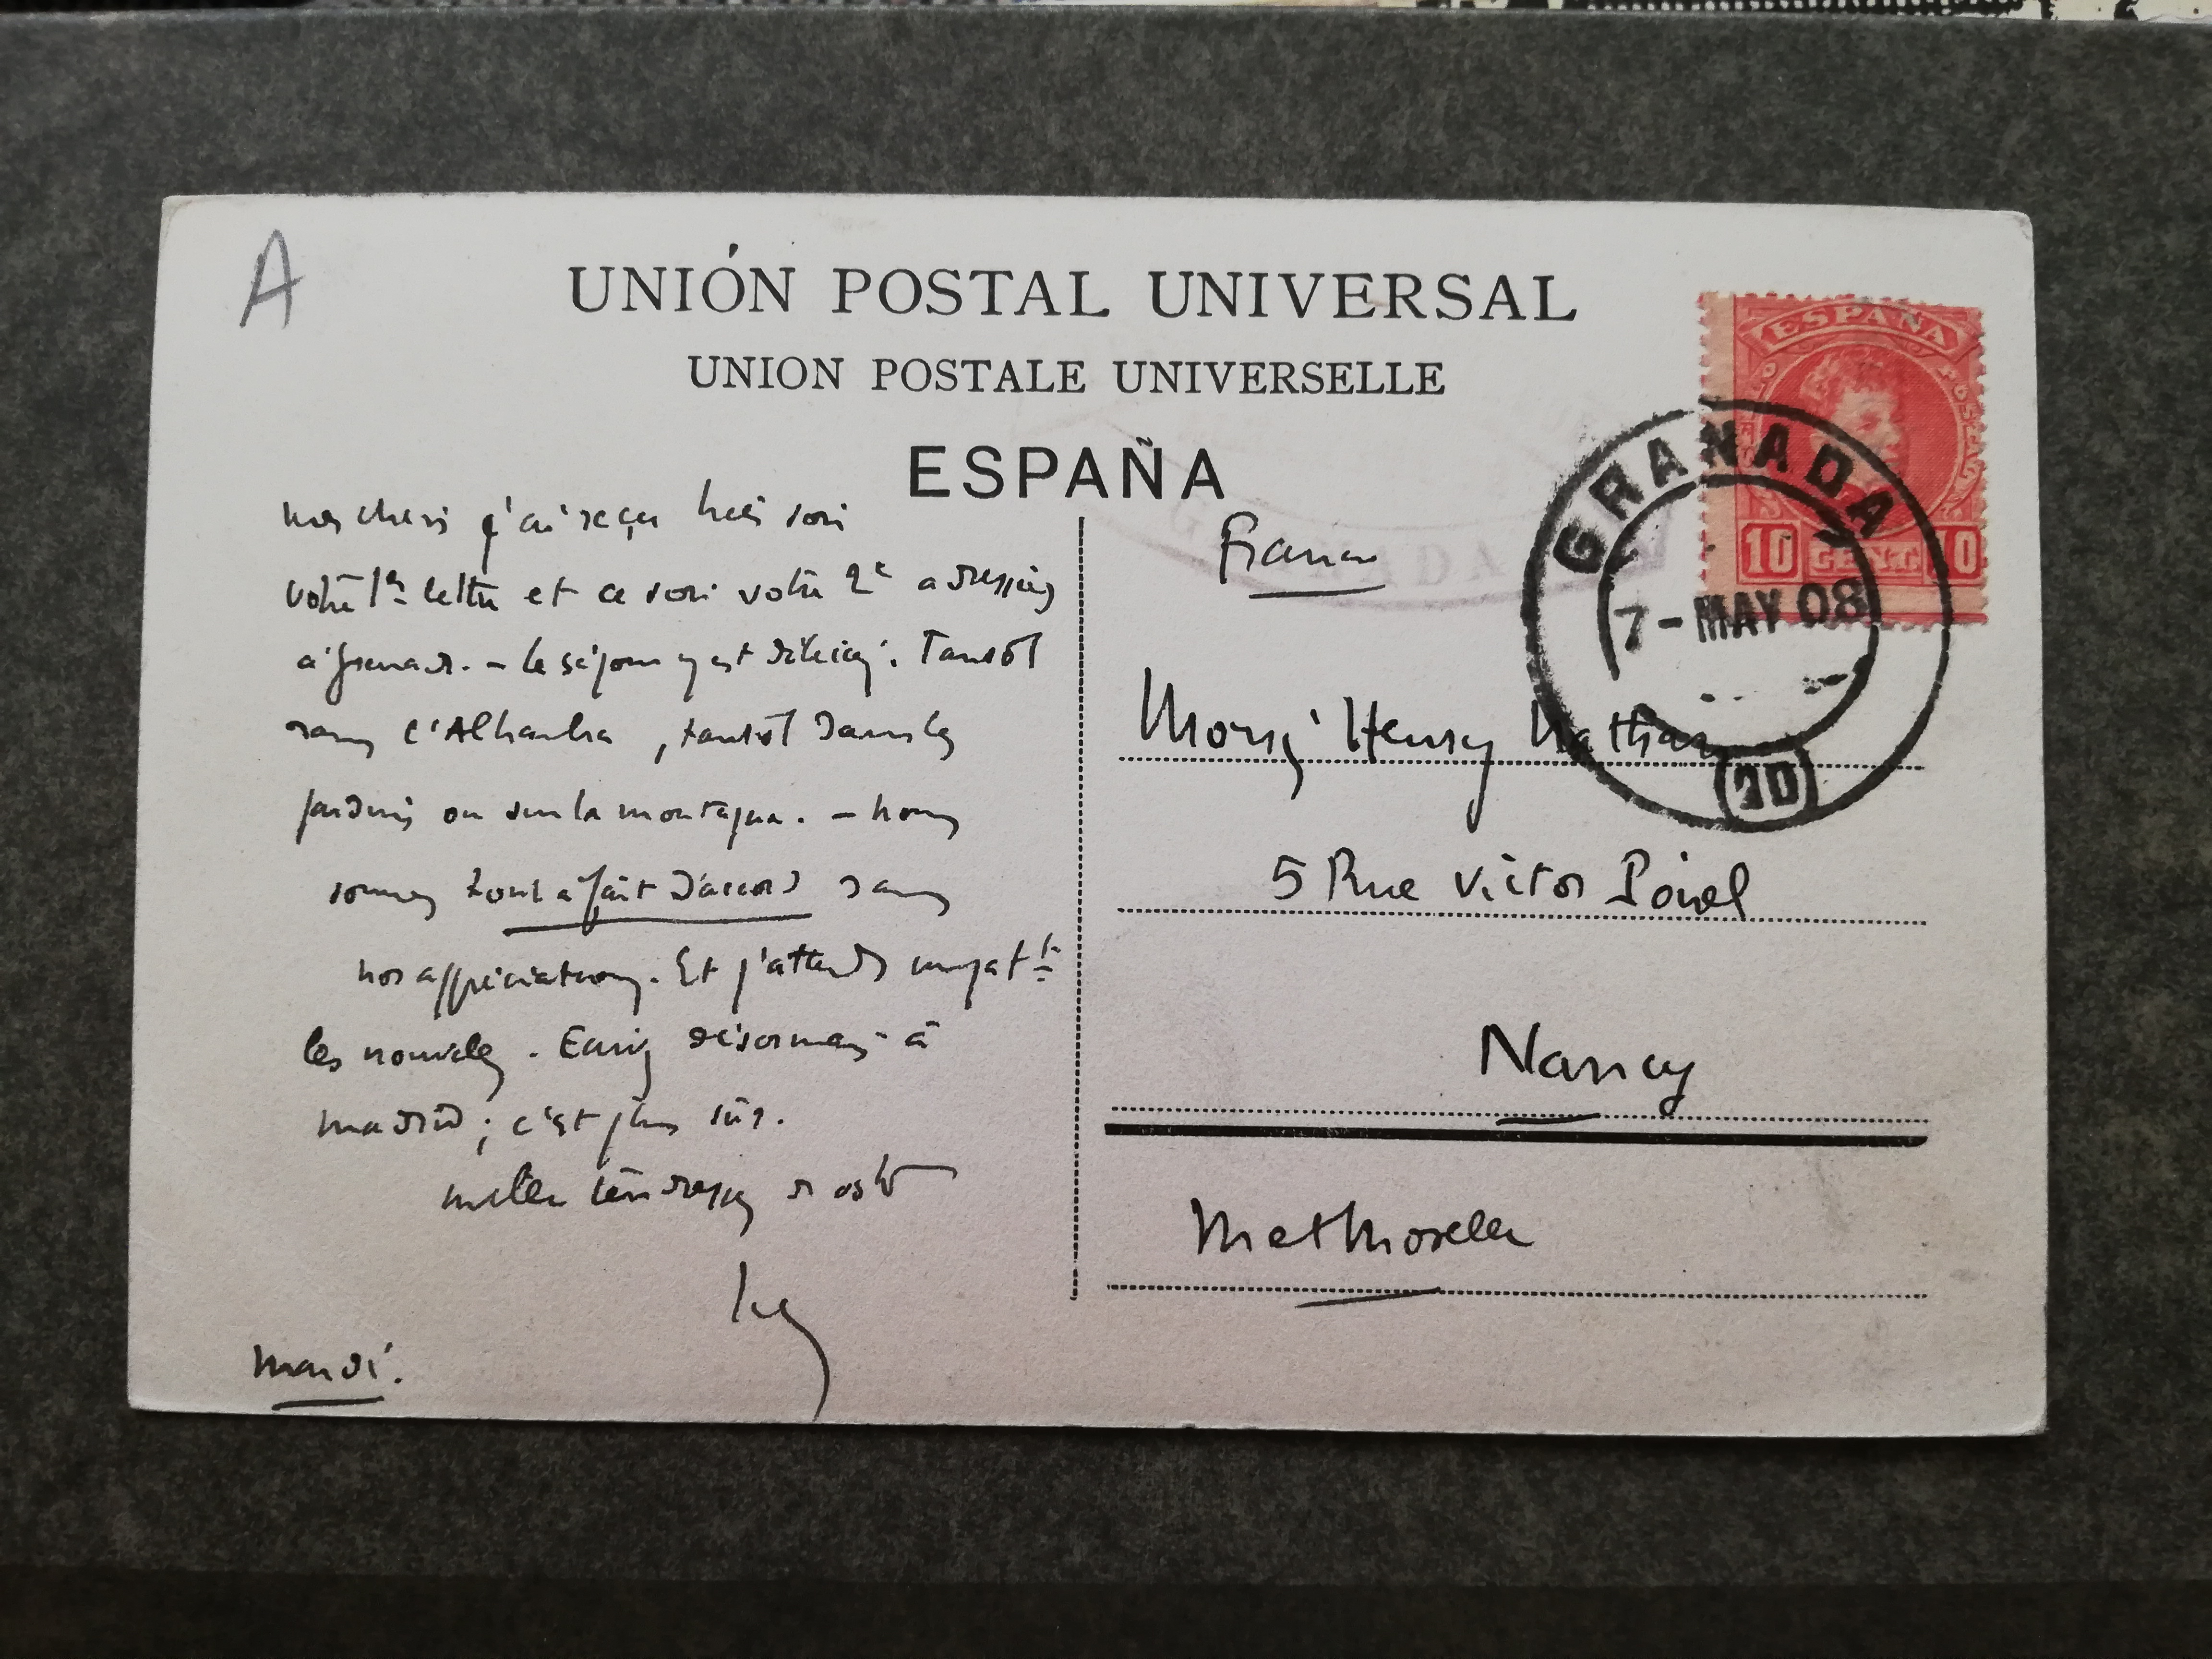 A
UNIÓN POSTAL UNIVERSAL
UNION POSTALE UNIVERSELLE
ESPAÑA
ESPAÑA
10 CENT. 10
GRANADA
7-MAY 08
nos chers j'ai reçu hier soir
votre 1re lettre et ce soir votre 2e adressées
à Grenade. - le séjour y est délicieux. Tantôt
dans l'Alhambra, tantôt dans les
jardins ou sur la montagne. - nous
sommes tout à fait d'accord dans
nos appréciations. Et j'attends impatt
les nouvelles. Ecrivez désormais à
Madrid ; c'est plus sûr.
mille tendresses
mardi.
France
Monsr Henry Nathan
5 Rue Victor Poirel
Nancy
Met Moselle